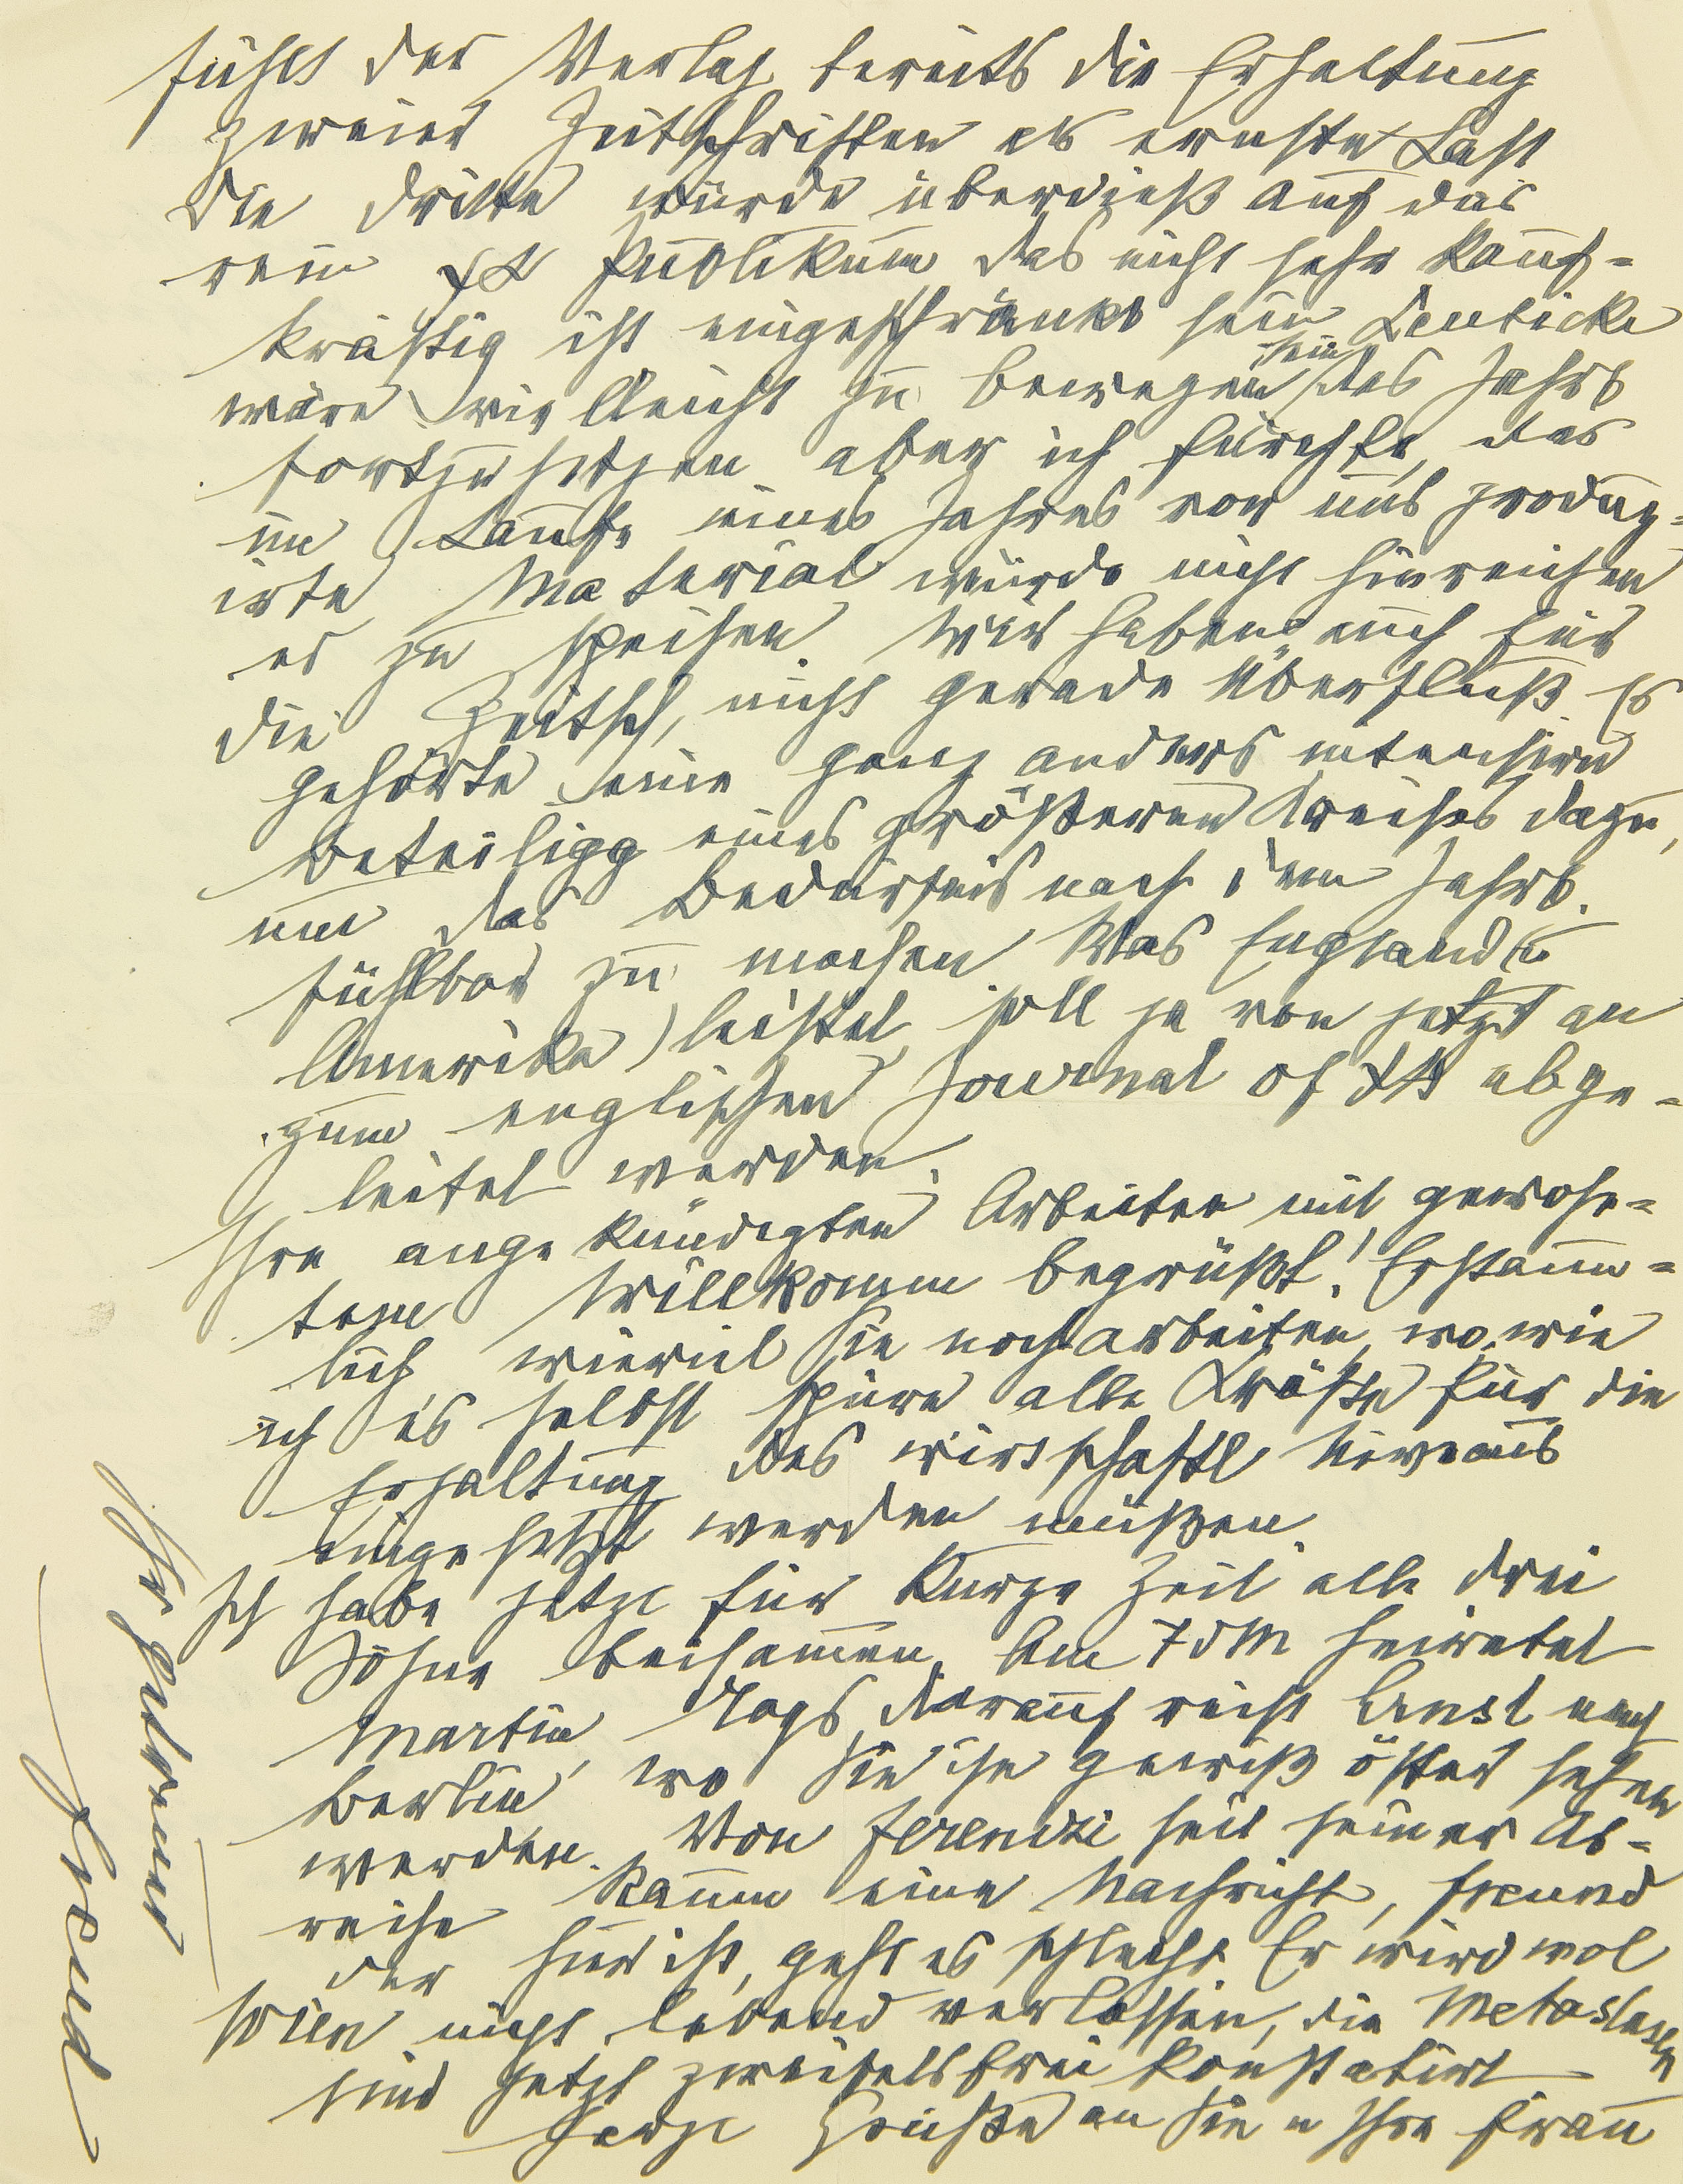 fühlt der Verlag bereits die Erhaltung
zweier Zeitschriften als ernste Last
Die dritte würde überdieß auf das
rein ΨΑ Publikum das nicht sehr kauf-
kräftig ist eingeschränkt sein Deuticke
wäre vielleicht zu bewegen sein das Jahrb
fortzusetzen aber ich fürchte, das
im Laufe eines Jahres von uns produz-
irte Material würde nicht hinreichen
es zu speisen. Wir haben auch für
die Zeitsch, nicht gerade Überfluß. Es
gehörte eine ganz anders intensive
Beteiligg eines größeren Kreises dazu,
um das Bedürfnis nach dem Jahrb.
fühlbar zu machen Was England (u
Amerika) leistet, soll ja von jetzt an
zum englischen Journal of ΨΑ abge-
leitet werden.
Ihre angekündigten Arbeiten mit gewohn-
tem Willkomm begrüßt! Erstaun-
lich, wieviel Sie noch arbeiten, wo, wie
ich es selbst spüre alle Kräfte für die
Erhaltung des wirtschaftl Niveaus
eingesetzt werden müßen.
Ich habe jetzt für kurze Zeit alle drei
Söhne beisammen. Am 7 d M heiratet
Martin, Tags darauf reist Ernst nach
Berlin, wo Sie ihn gewiß öfter sehen
werden. Von Ferenczi seit seiner Ab-
reise kaum eine Nachricht, Freund
der hier ist, geht es schlecht. Er wird wol
Wien nicht lebend verlassen, die Metastasen
sind jetzt zweifelsfrei konstatirt
Herzl Grüße an Sie u Ihre Frau
Ihr getreuer
Freud